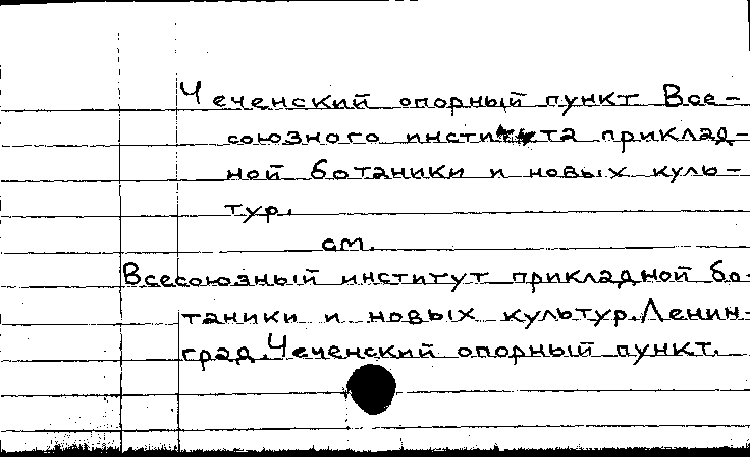 Чеченский опорный пункт Все-
союзного института приклад-
ной ботаники и новых куль-
тур.
см.
Всесоюзный институт прикладной бо-
таники и новых культур. Ленин-
град. Чеченский опорный пункт.